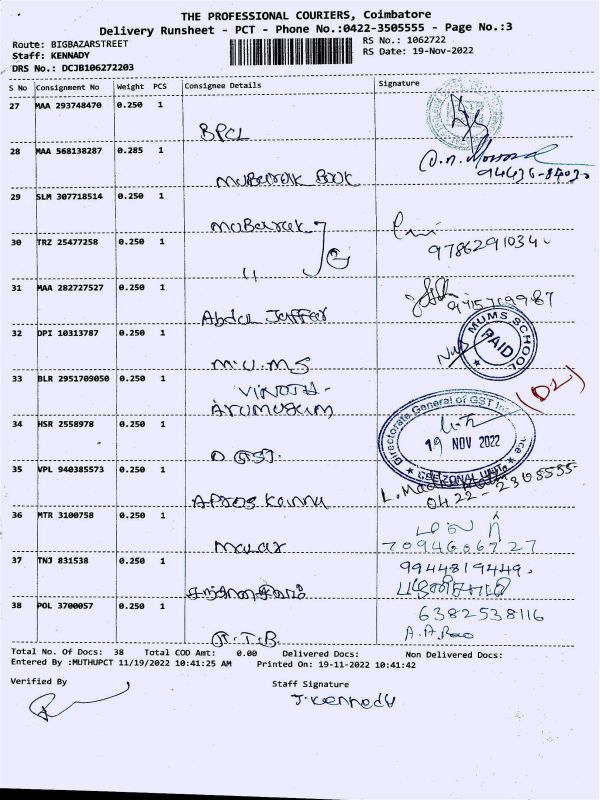 THE PROFESSIONAL COURIERS, Coimbatore
Delivery Runsheet - PCT - Phone No.:0422-3505555 - Page No.:3
Route: BIGBAZARSTREET
RS No.: 1062722
Staff: KENNADY
RS Date: 19-Nov-2022
DRS No.: DCJB106272203
S No Consignment No Weight PCS Consignee Details Signature
27 MAA 293748470 0.250 1
BPCL
28 MAA 568138287 0.285 1
Mubarak Book
29 SLM 307718514 0.250 1
Mubarak
30 TRZ 25477258 0.250 1
9786291034.
"
31 MAA 282727527 0.250 1
Abdul Jaffar
32 DPI 10313787 0.250 1
MUMS SCHOOL
PAID
M.U.M.S
33 BLR 2951709050 0.250 1
VINOTH-
Arumugam
(D2)
34 HSR 2558978 0.250 1
Directorate General of GST
19 NOV 2022
CBE ZONAL UNIT
D GST.
35 VPL 940385573 0.250 1
0422-2305555
36 MTR 3100758 0.250 1
மலர்
Malar
7094606727
37 TNJ 831538 0.250 1
9944819449.
பழனிசாமி
38 POL 3700057 0.250 1
6382538116
A.A.Rao
Total No. Of Docs: 38 Total COD Amt: 0.00 Delivered Docs: Non Delivered Docs:
Entered By :MUTHUPCT 11/19/2022 10:41:25 AM Printed On: 19-11-2022 10:41:42
Verified By
Staff Signature
J. Kennedy